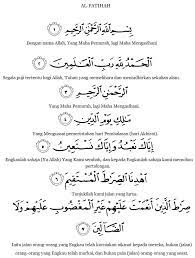 AL-FATIHAH
بِسْمِ اللَّهِ الرَّحْمَٰنِ الرَّحِيمِ ﴿١﴾
Dengan nama Allah, Yang Maha Pemurah, lagi Maha Mengasihani.
الْحَمْدُ لِلَّهِ رَبِّ الْعَالَمِينَ ﴿٢﴾
Segala puji tertentu bagi Allah, Tuhan yang memelihara dan mentadbirkan sekalian alam.
الرَّحْمَٰنِ الرَّحِيمِ ﴿٣﴾
Yang Maha Pemurah, lagi Maha Mengasihani.
مَالِكِ يَوْمِ الدِّينِ ﴿٤﴾
Yang Menguasai pemerintahan hari Pembalasan (hari Akhirat).
إِيَّاكَ نَعْبُدُ وَإِيَّاكَ نَسْتَعِينُ ﴿٥﴾
Engkaulah sahaja (Ya Allah) Yang Kami sembah, dan kepada Engkaulah sahaja kami memohon
pertolongan.
اهْدِنَا الصِّرَاطَ الْمُسْتَقِيمَ ﴿٦﴾
Tunjukilah kami jalan yang lurus.
صِرَاطَ الَّذِينَ أَنْعَمْتَ عَلَيْهِمْ غَيْرِ الْمَغْضُوبِ عَلَيْهِمْ وَلَا
الضَّالِّينَ ﴿٧﴾
Iaitu jalan orang-orang yang Engkau telah kurniakan nikmat kepada mereka, bukan (jalan)